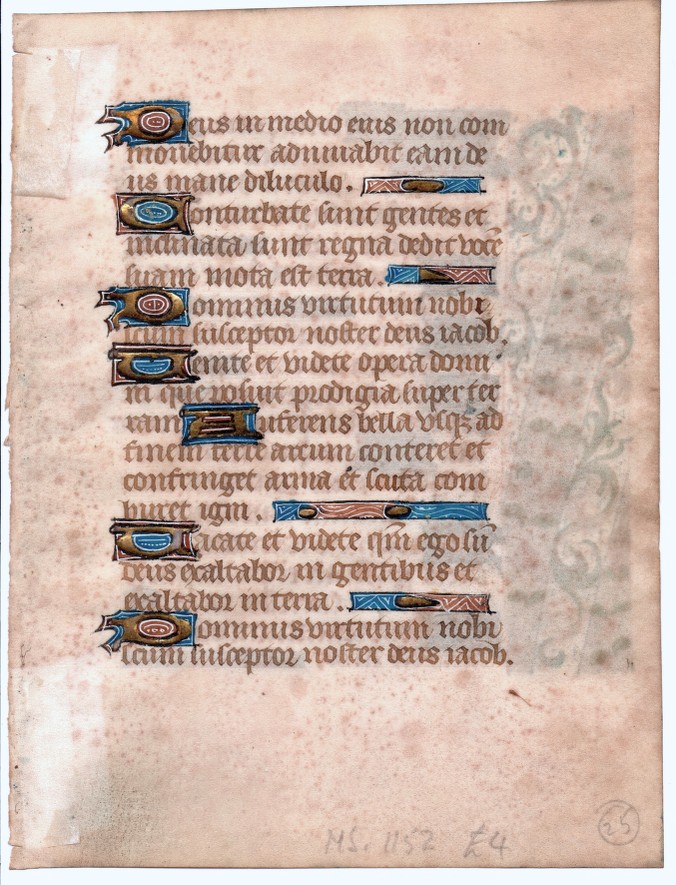 Deus in medio eius non com
mouebitur adiuuabit eam de
us mane diluculo.
Conturbate sunt gentes et
inclinata sunt regna dedit vocē
suam mota est terra.
Dominus virtutum nobi
scum susceptor noster deus iacob.
Uenite et videte opera domi
ni que posuit prodigia super ter
ram Auferens bella vsqꝫ ad
finem terre arcum conteret et
confringet arma et scuta com
buret igni.
Uacate et videte qm̄ ego sū
deus exaltabor in gentibus et
exaltabor in terra.
Dominus virtutum nobi
scum susceptor noster deus iacob.
25
MS. 1152 £4